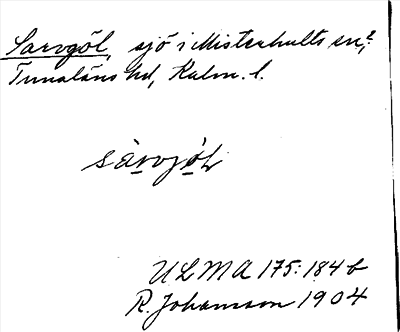 Sarvgöl, sjö i Misterhults sn,
Tunaläns hd, Kalm. l.
sàrvjö̀l
ULMA 175:184 b
R. Johanson 1904